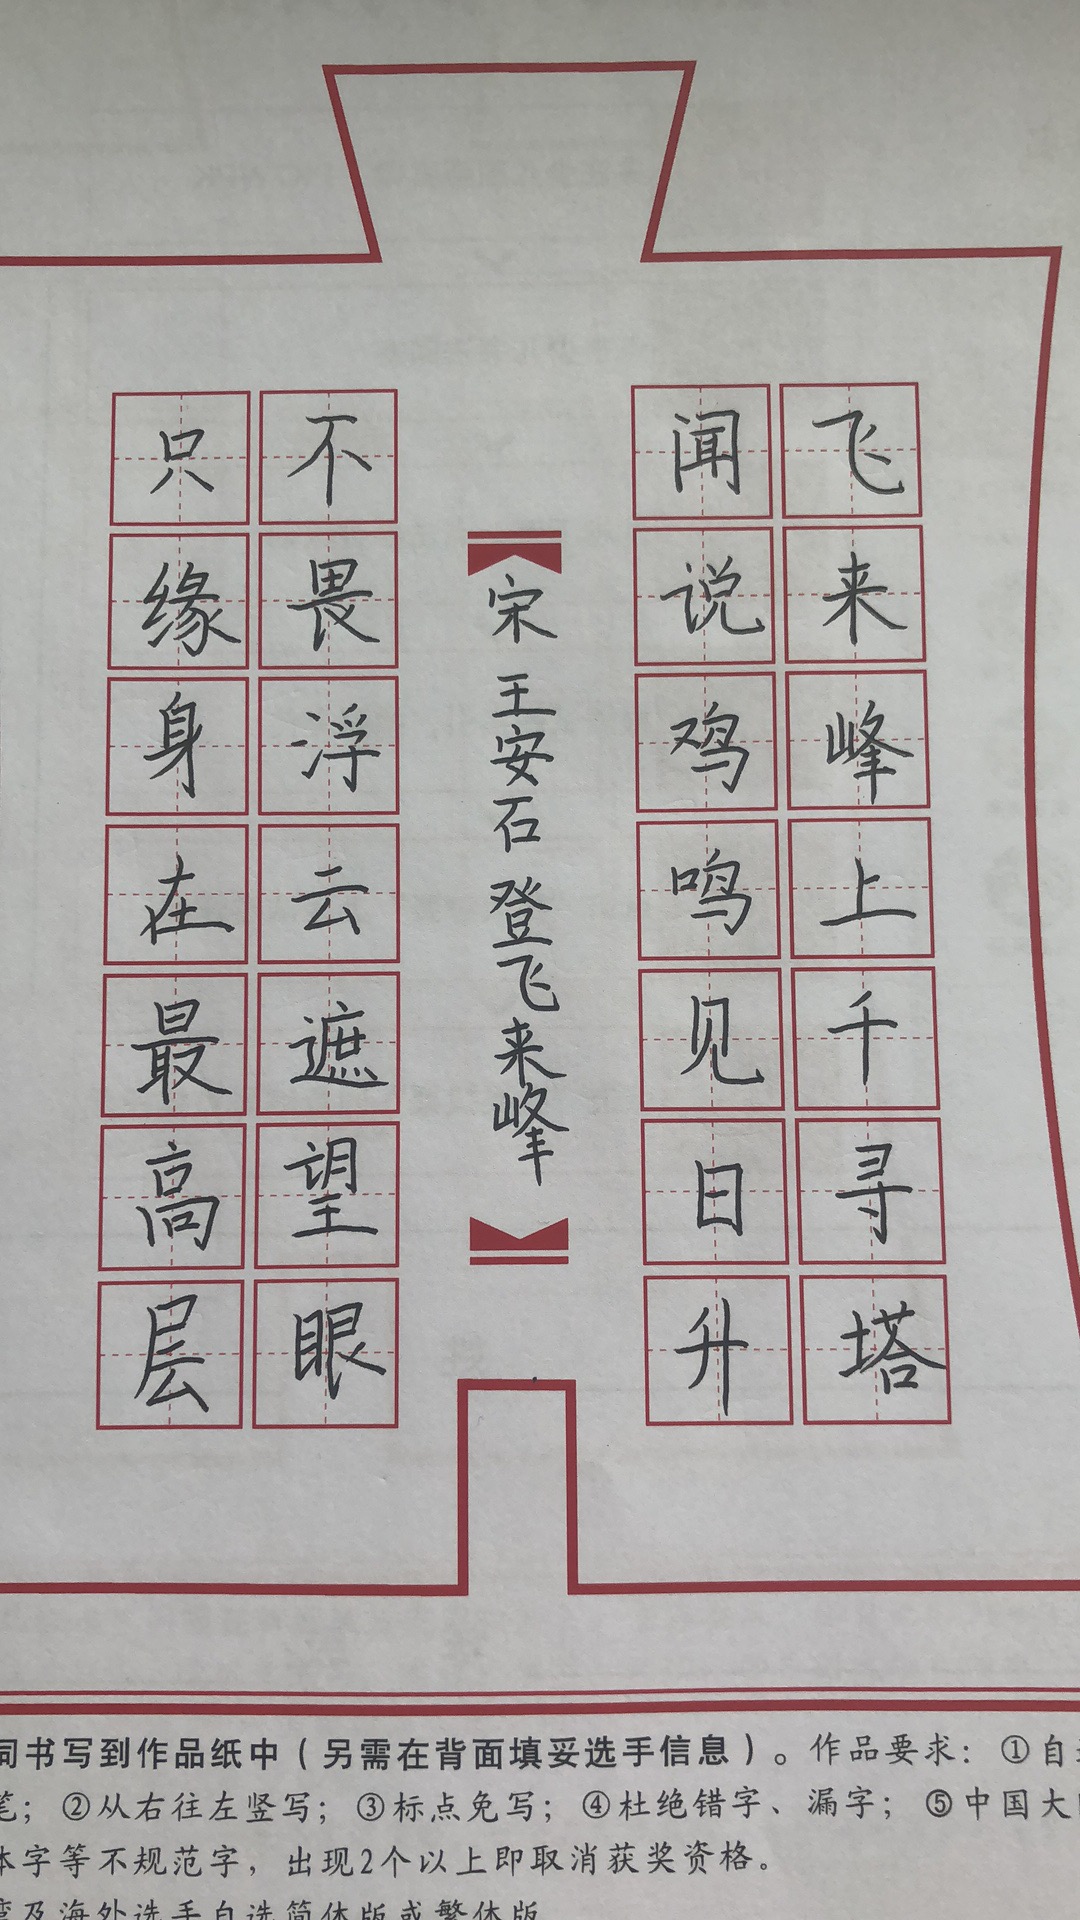 飞来峰上千寻塔
闻说鸡鸣见日升
宋 王安石 登飞来峰
不畏浮云遮望眼
只缘身在最高层
词书写到作品纸中（另需在背面填妥选手信息）。作品要求：①自
笔；②从右往左竖写；③标点免写；④杜绝错字、漏字；⑤中国大
体字等不规范字，出现2个以上即取消获奖资格。
湾及海外选手自选简体版或繁体版